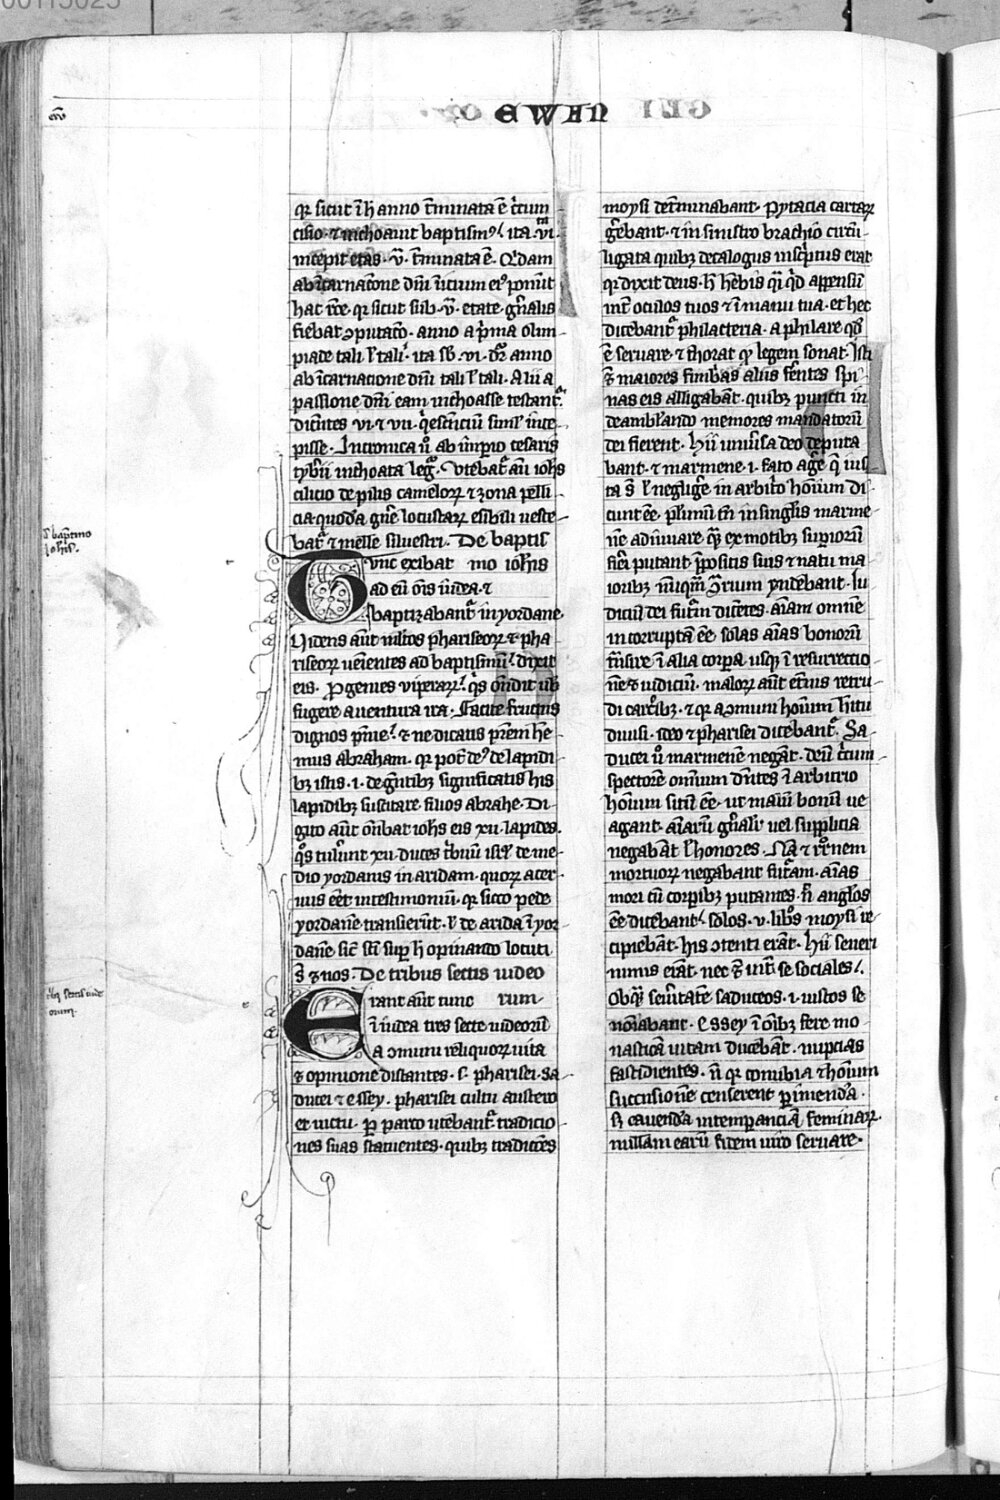 EWAN
qr sicut ī h̄ anno t̄minata ē c̄cum
cisio · ⁊ inchoauit baptism⁹ ita · vi ·
incepit etas · v̄ · t̄minata ē · Q̄dam
ab īcarnacōne dn̄i inicium ei⁹ ponūt
hac rōe · qr sicut sub · v̄ · etate · gn̄alis
fiebat ↄputaco᷈ · anno a p̄ma olim
piade tali ł tali · ita sb̄ · vi · dr̄ anno
ab īcarnacione dn̄i tali ł tali · Alii a
passione dn̄i eam inchoasse testant᷑ ·
dicētes · vi · ⁊ vii · q̄escēciū simł ince
pisse · In cronica ū ab imꝑio cesaris
tyb̄ii inchoata leg᷑ · Vtebat᷑ aū ioh̄s
cilicio de pilis camelorꝝ ⁊ zona pelli
cia · quoda᷈ gn̄e locustarꝝ esibili ueste
bat᷑ ⁊ melle siluestri · De baptis
Tvnc exibat mo ioh̄is
ad eū om̄s iudea · ⁊
baptizabant᷑ in yordane
Videns aūt m̄ltos phariseorꝝ ⁊ pha
riseorꝝ ueīentes ad baptismū · dixit
eis · Progenies viperarꝝ · q̄s on̄dit ub̄
fugere a uentura ira · Facite fructus
dignos pn̄ie · ⁊ ne dicatis pr̄em he
mus abraham · qr pot̄ de⁹ de lapidi
bꝫ istis · i · de gn̄tibꝫ significatis his
lapidibꝫ suscitare filios abrahe · Di
gito aūt on̄bat ioh̄s eis xii · lapides ·
q̄s tuler̄unt xii · duces t̄bnū isrł de me
dio yordanis in aridam · quorꝝ acer
uus eēt in testimoniū · qr sicco pede
yordanē transierūt · ł de arida ī yor
danē sic̄ sc̄i suꝑ h̄ opinando locuti
s̄t ⁊ nos · De tribus sectis iudeo
Erant aūt tunc rum
ī iudea tres secte iudeorū
a ↄmuni reliquorꝝ uita
⁊ opinione distantes · s · pharisei · sa
ducei ⁊ essey · pharisei cultu austero
et uictu · ꝑ parco utebant᷑ tradicio
nes suas statuentes · quibꝫ tradicōes
moysi det̄minabant · Pytacia cartarꝝ
ḡebant · ⁊ in sinistro brachio circū
ligata quibꝫ decalogus inscriptus erat
qr dixit deus · h̄ hēbis q̄i q̄d appensū
int̄ oculos tuos ⁊ ī manu tua · et hec
dicebant᷑ philacteria · a philare qd̄
ē seruare · ⁊ thorat qd̄ legem sonat · Isti
⁊ maiores fimbrias aliis fēntes spi
nas eis alligabāt · quibꝫ puncti in
deambłando memores mandatorū
dei fierent · Hii uniūsa deo deputa
bant · ⁊ marmene · i · fato aḡe q̄ ius
ta s̄t ł negliḡe in arbit̄o hoīum di
cunt eē · plīmū tn̄ in singłis marme
ne adiuuare
ioribꝫ
diciū dei futr̄m dicētes · aīam omnē
incorruptā eē · solas aīas bonorū
t̄nsire ī alia corꝑa usqꝫ ī resurrectio
nē ⁊ iudiciū · malorꝝ aūt et̄nis retru
di carc̄ibꝫ · ⁊ qr a ↄmuni hoīum h̄itu
diuisi · ideo ⁊ pharisei dicebant᷑ · Sa
ducei ū marmenē negāt · deū c̄cum
spectorē omnium dn̄tes ī arbitrio
hoīum sitū eē · ut malū bonū ue
agant · aīarū gn̄alr̄ uel supplicia
negabāt ł honores · Nā ⁊ rr̄onem
mortuorꝝ negabant futr̄am · aīas
mori cū corꝑibꝫ putantes · n̄ angłos
eē dicebant solos · v · libros moysi re
cipiebāt · his ↄtenti erāt · Hii seueri
nimis erāt · nec ⁊ int̄ se sociales
Obqꝫ seu̅itatē saduceos · i · iustos se
noīabant · essey ī oībꝫ fere mo
nasticā uitam ducebāt · nupcias
fastidientes · n̄ qr conubia ⁊ hoīum
successionē censerent ꝑimenda ·
sꝫ cauenda intemꝑanciā feminarꝝ
nullam earū fidem uiro seruare ·